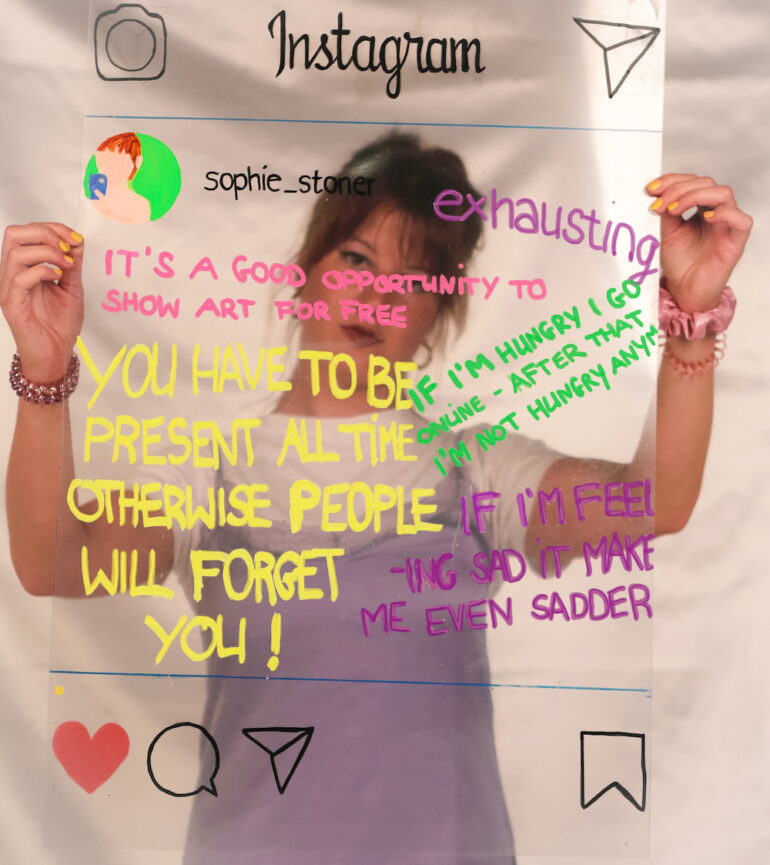 Instagram
sophie_stoner
exhausting
IT'S A GOOD OPPORTUNITY TO
SHOW ART FOR FREE
IF I'M HUNGRY I GO
ONLINE - AFTER THAT
I'M NOT HUNGRY ANYM
YOU HAVE TO BE
PRESENT ALL TIME
OTHERWISE PEOPLE
WILL FORGET
YOU!
IF I'M FEEL
-ING SAD iT MAKE
ME EVEN SADDER